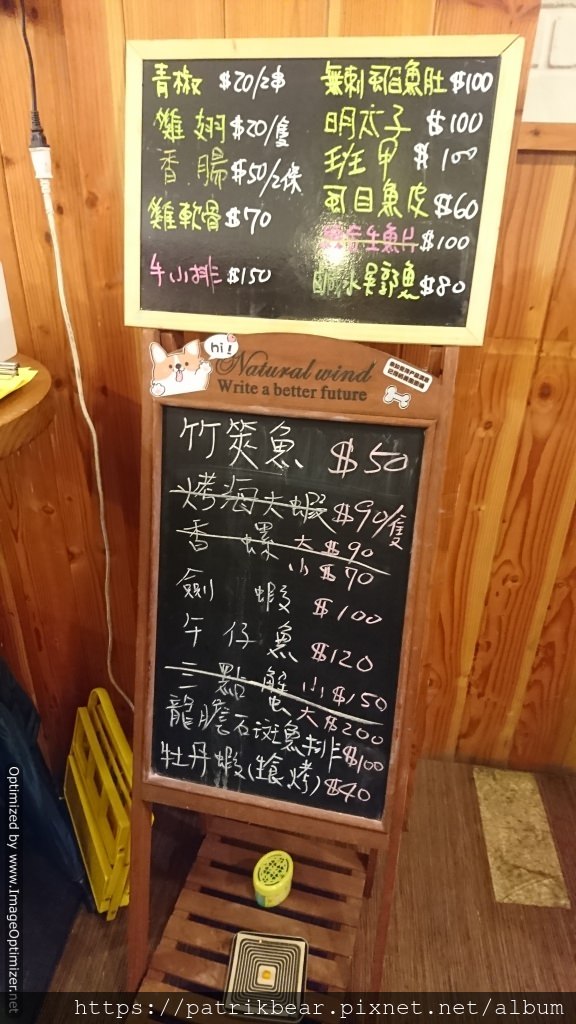 青椒 $20/2串
雞翅 $20/隻
香腸 $50/2條
雞軟骨 $70
牛小排 $150
無刺虱目魚肚 $100
明太子 $100
班甲 $100
虱目魚皮 $60
生魚片 $100
鹹水吳郭魚 $80
hi!
Natural wind
Write a better future
竹筴魚 $50
烤海大蝦 $90/隻
香螺 大 $90
小 $70
劍蝦 $100
午仔魚 $120
三點蟹 小 $150
大 $200
龍膽石斑魚排 $100
牡丹蝦(生食烤) $40
Optimized by www.ImageOptimizer.net
https://patrikbear.pixnet.net/album